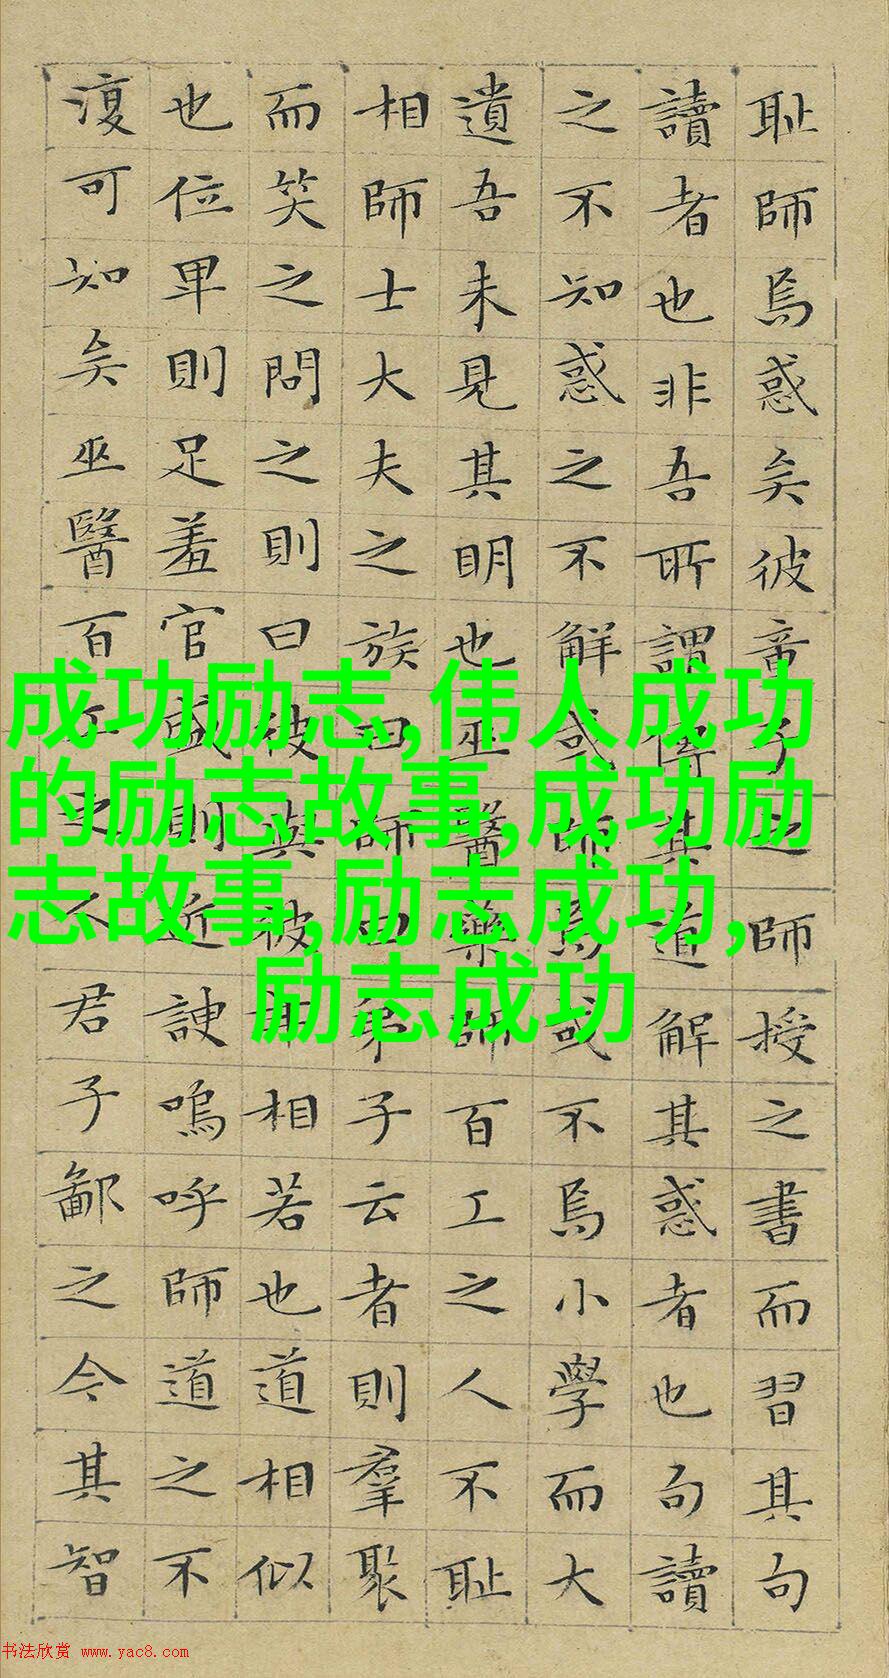 耻師焉惑矣彼童子之師授之書而習其句
讀者也非吾所謂傳其道解其惑者也句讀
之不知惑之不解或師焉或不焉小學而大
遺吾未見其明也巫醫藥師百工之人不耻
相師士大夫之族曰師曰弟子云者則羣聚
而笑之問之則曰彼與彼年相若也道相似
也位卑則足羞官盛則近諛嗚呼師道之不
復可知矣巫醫百工之人君子鄙之今其智
成功励志,伟人成功
的励志故事,成功励
志故事,励志成功,
励志成功
书法欣赏 www.yac8.com